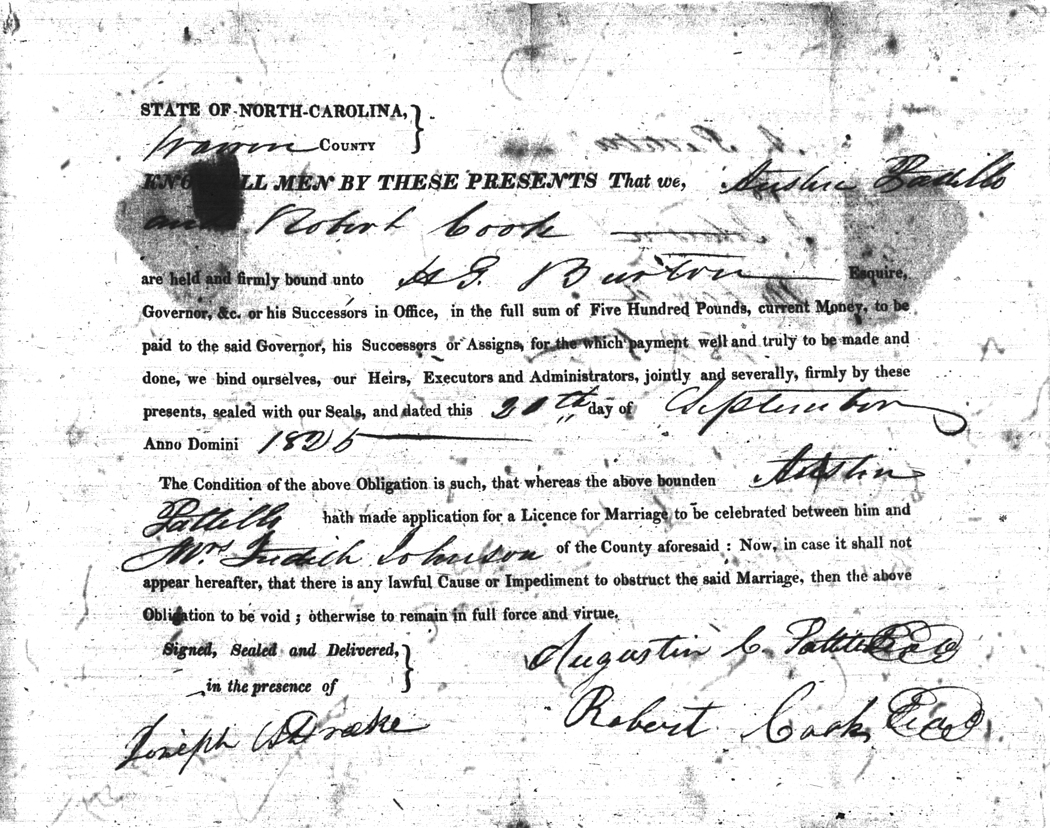 STATE OF NORTH-CAROLINA,
Warren COUNTY
KNOW ALL MEN BY THESE PRESENTS That we, Austin Pattillo
and Robert Cook
are held and firmly bound unto H G. Burton Esquire,
Governor, &c. or his Successors in Office, in the full sum of Five Hundred Pounds, current Money, to be
paid to the said Governor, his Successors or Assigns, for the which payment well and truly to be made and
done, we bind ourselves, our Heirs, Executors and Administrators, jointly and severally, firmly by these
presents, sealed with our Seals, and dated this day of September
Anno Domini 1825
The Condition of the above Obligation is such, that whereas the above bounden Austin
Pattillo hath made application for a Licence for Marriage to be celebrated between him and
Mrs. Judith Johnson of the County aforesaid : Now, in case it shall not
appear hereafter, that there is any lawful Cause or Impediment to obstruct the said Marriage, then the above
Obligation to be void ; otherwise to remain in full force and virtue.
Signed, Sealed and Delivered,
in the presence of
Augustin C. Pattillo Seal
Robert Cook Seal
Joseph Drake